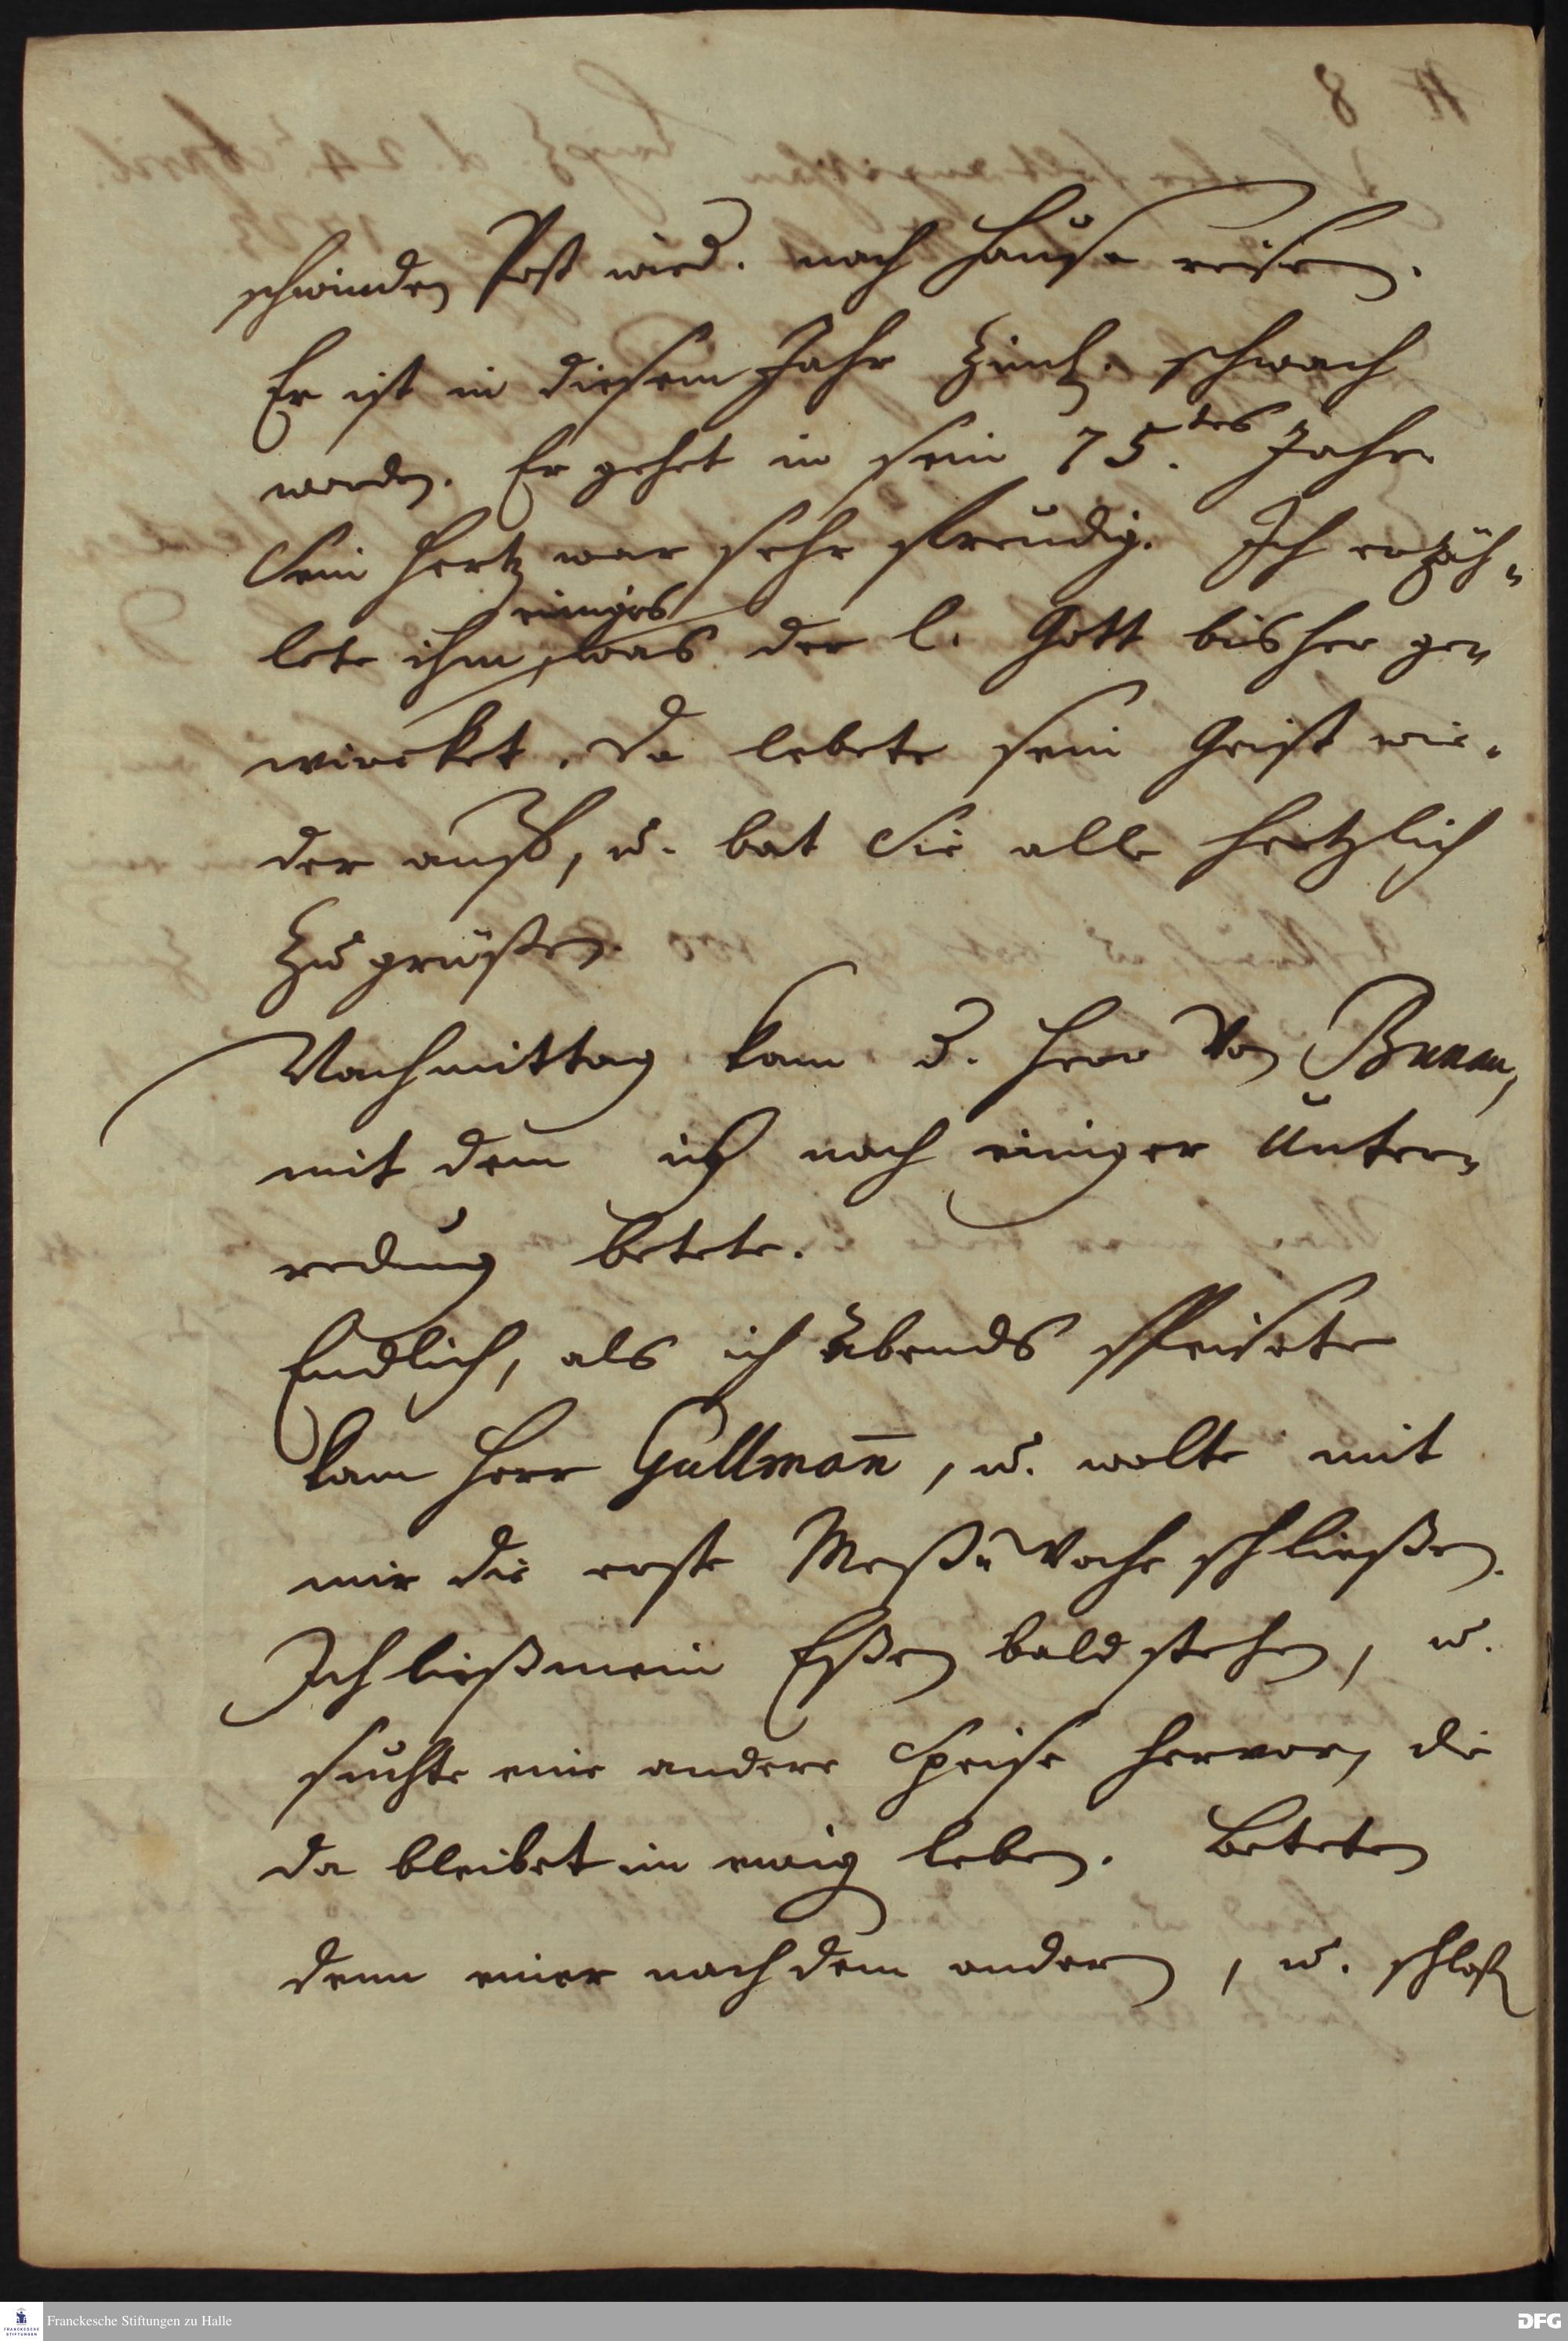 schwinden Post wied. nach Hause reisen.
Er ist in diesem Jahr Ziml. schwach
worden. Er gehet in sein 75.tes Jahr
Sein Hertz war sehr freudig. Ich erzäh-
lete ihm, einiges was der l. Gott bisher ge-
wircket. Da lebete sein Geist wie-
der auff, u. bat Sie alle hertzlich
Zu grüßen.
Nachmittag kam d. Herr Von Bunau,
mit dem ich nach einiger Unter-
redung betete.
Endlich, als ich Abends speisete
kam Herr Gullmañ, u. wolte mit
mir die erste Meß-Woche schließen.
Ich ließ mein Eßen bald stehen, u.
suchte eine andere Speise hervor, die
da bleibet im ewig leben. Beteten
denn einer nach dem andern, u. schloß
Franckesche Stiftungen zu Halle
DFG